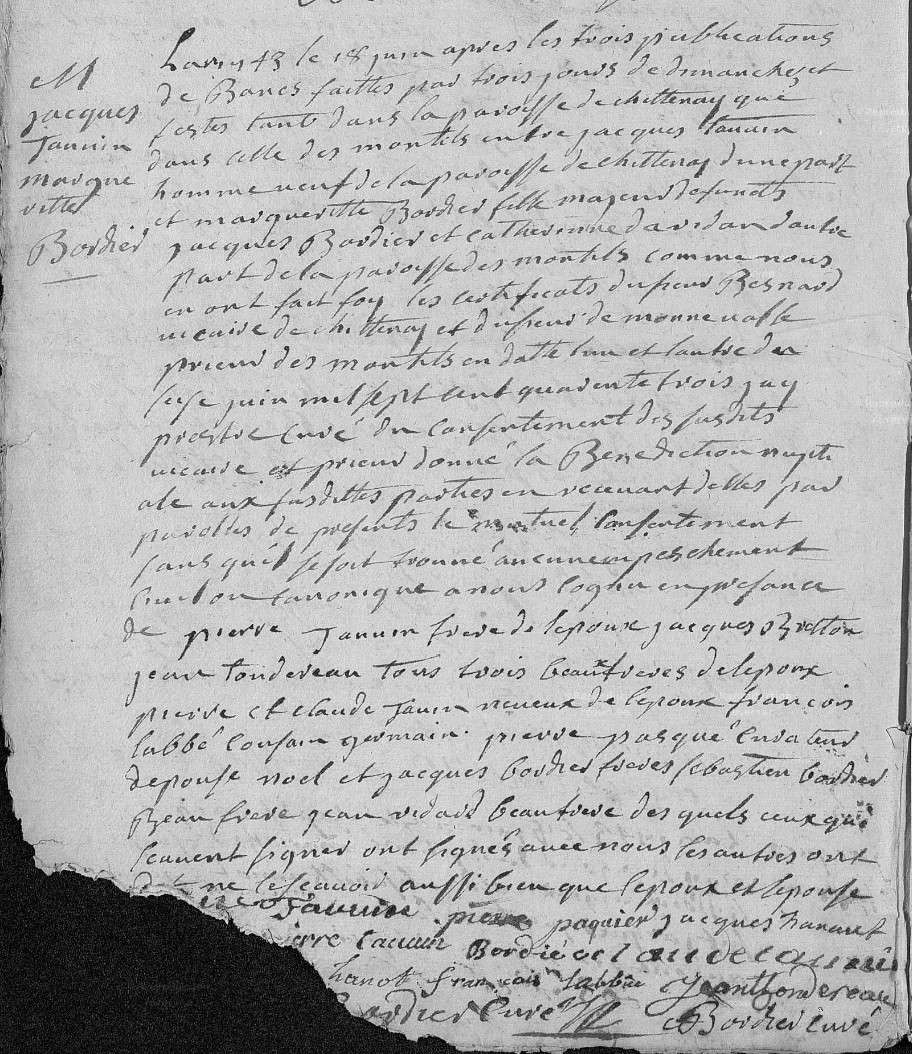 M
jacques
Tauvin
margue
ritte
Bordier
Lan 1743 le 18 juin apres les trois publications
de Bancs faittes par trois jours de dimanches et
festes tant dans la paroisse de chittenay que
dans celle des montils entre jacques tauvin
homme veuf de la paroisse de chittenay dune part
et margueritte Bordier fille majeur defunts
jacques Bordier et catherinne daridan dautre
part de la paroisse des montils comme nous
en ont fait foy les certificats du sieur Besnard
vicaire de chittenay et du sieur de monnevasse
prieur des montils en datte lun et lautre du
seise juin mil sept cent quarente trois jay
prestre curé du consentement des susdits
vicaire et prieur donné la Benediction nupti
ale aux susdittes parties en recevant delles par
parolles de presents le mutuel consentement
sans quil se soit trouvé aucun empeschement
civil ou canonique a nous cognu en presance
de pierre Tauvin frere de lepoux jacques Bretton
jean tondereau tous trois beaufreres de lepoux
pierre et claude Tauvin neveux de lepoux françois
labbé cousain germain. pierre pasqué curateur
depouse noel et jacques bordier freres sebastien bordier
Beau frere jean vidard beaufrere des quels ceux qui
scauent signer ont signés avec nous les autres ont
ne le scavoir aussi bien que lepoux et lepouse
Tauvin pierre paquier jacques hanaut
ierre tauvin Bordié claude tauvin
hanot françois labbée jean thondereau
Bordier Curé Bordier curé